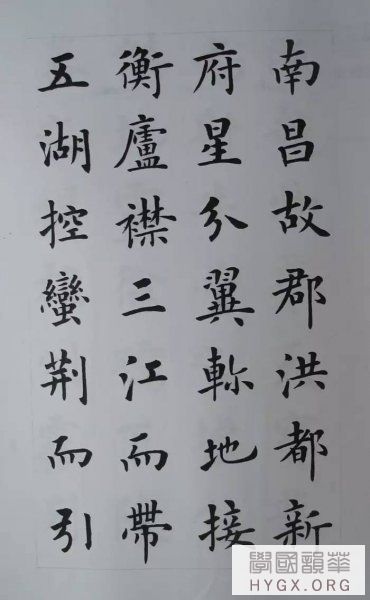 南昌故郡洪都新
府星分翼軫地接
衡廬襟三江而帶
五湖控蠻荆而引
華韻國學
HYGX.ORG